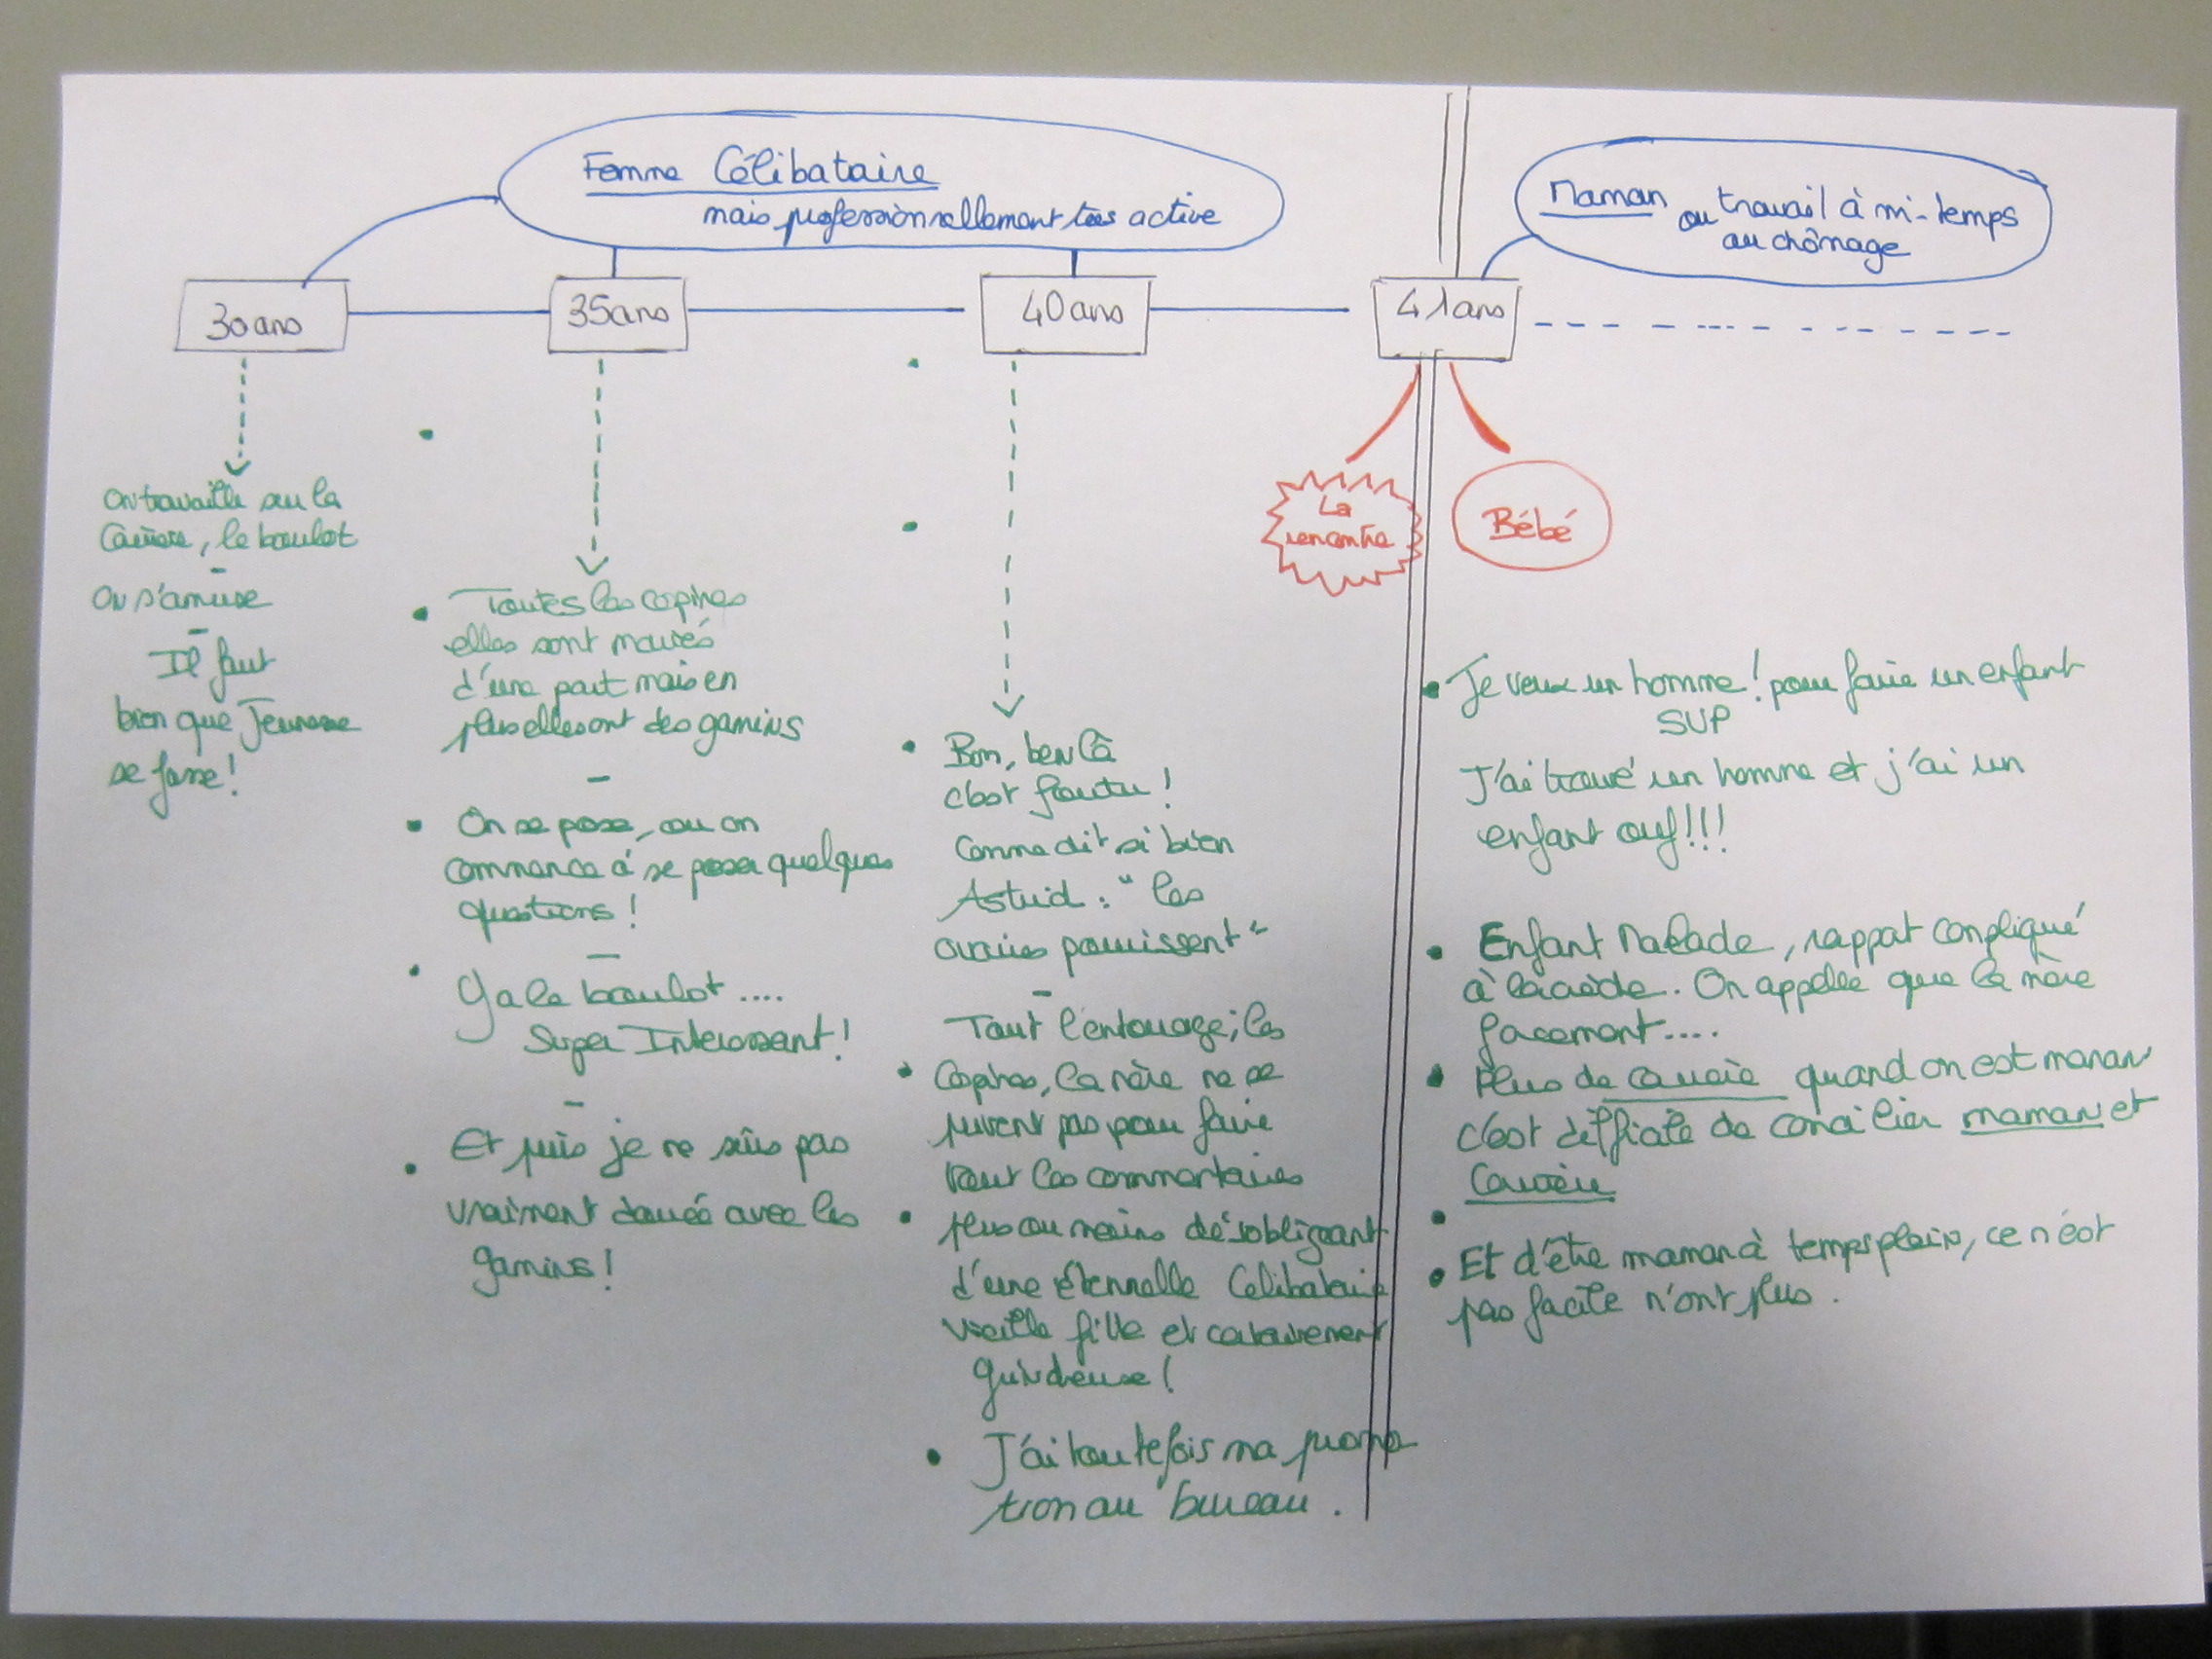 Femme Célibataire
mais professionnellement très active
Maman ou travail à mi-temps
au chômage
30 ans
35 ans
40 ans
41 ans
On travaille sur la
Carrière, le boulot
-
On s'amuse
-
Il faut
bien que Jeunesse
se fasse !
• Toutes les copines
elles sont mariés
d'une part mais en
plus elles ont des gamins
-
• On se pose, ou on
commence à se poser quelques
questions !
-
• Y a le boulot ....
Super Interessant !
-
• Et puis je ne suis pas
vraiment douée avec les
gamins !
• Bon, ben là
c'est foutu !
Comme dit si bien
Astrid : "les
ovaires pourrissent"
-
Tout l'entourage, les
• Copines, la mère ne se
privent pas pour faire
tout les commentaires
• plus ou moins désobligeant
d'une éternelle Célibataire
vieille fille et certainement
guindeuse !
• J'ai toutefois ma promo
tion au bureau .
La
rencontre
Bébé
• Je veux un homme ! pour faire un enfant
SUP
J'ai trouvé un homme et j'ai un
enfant ouf !!!
• Enfant Malade, rapport compliqué
à la crèche. On appelle que la mère
forcement ....
• Plus de carrière quand on est maman
c'est difficile de concilier maman et
Carrière
• Et d'être maman à temps plein, ce n'est
pas facile n'ont plus .